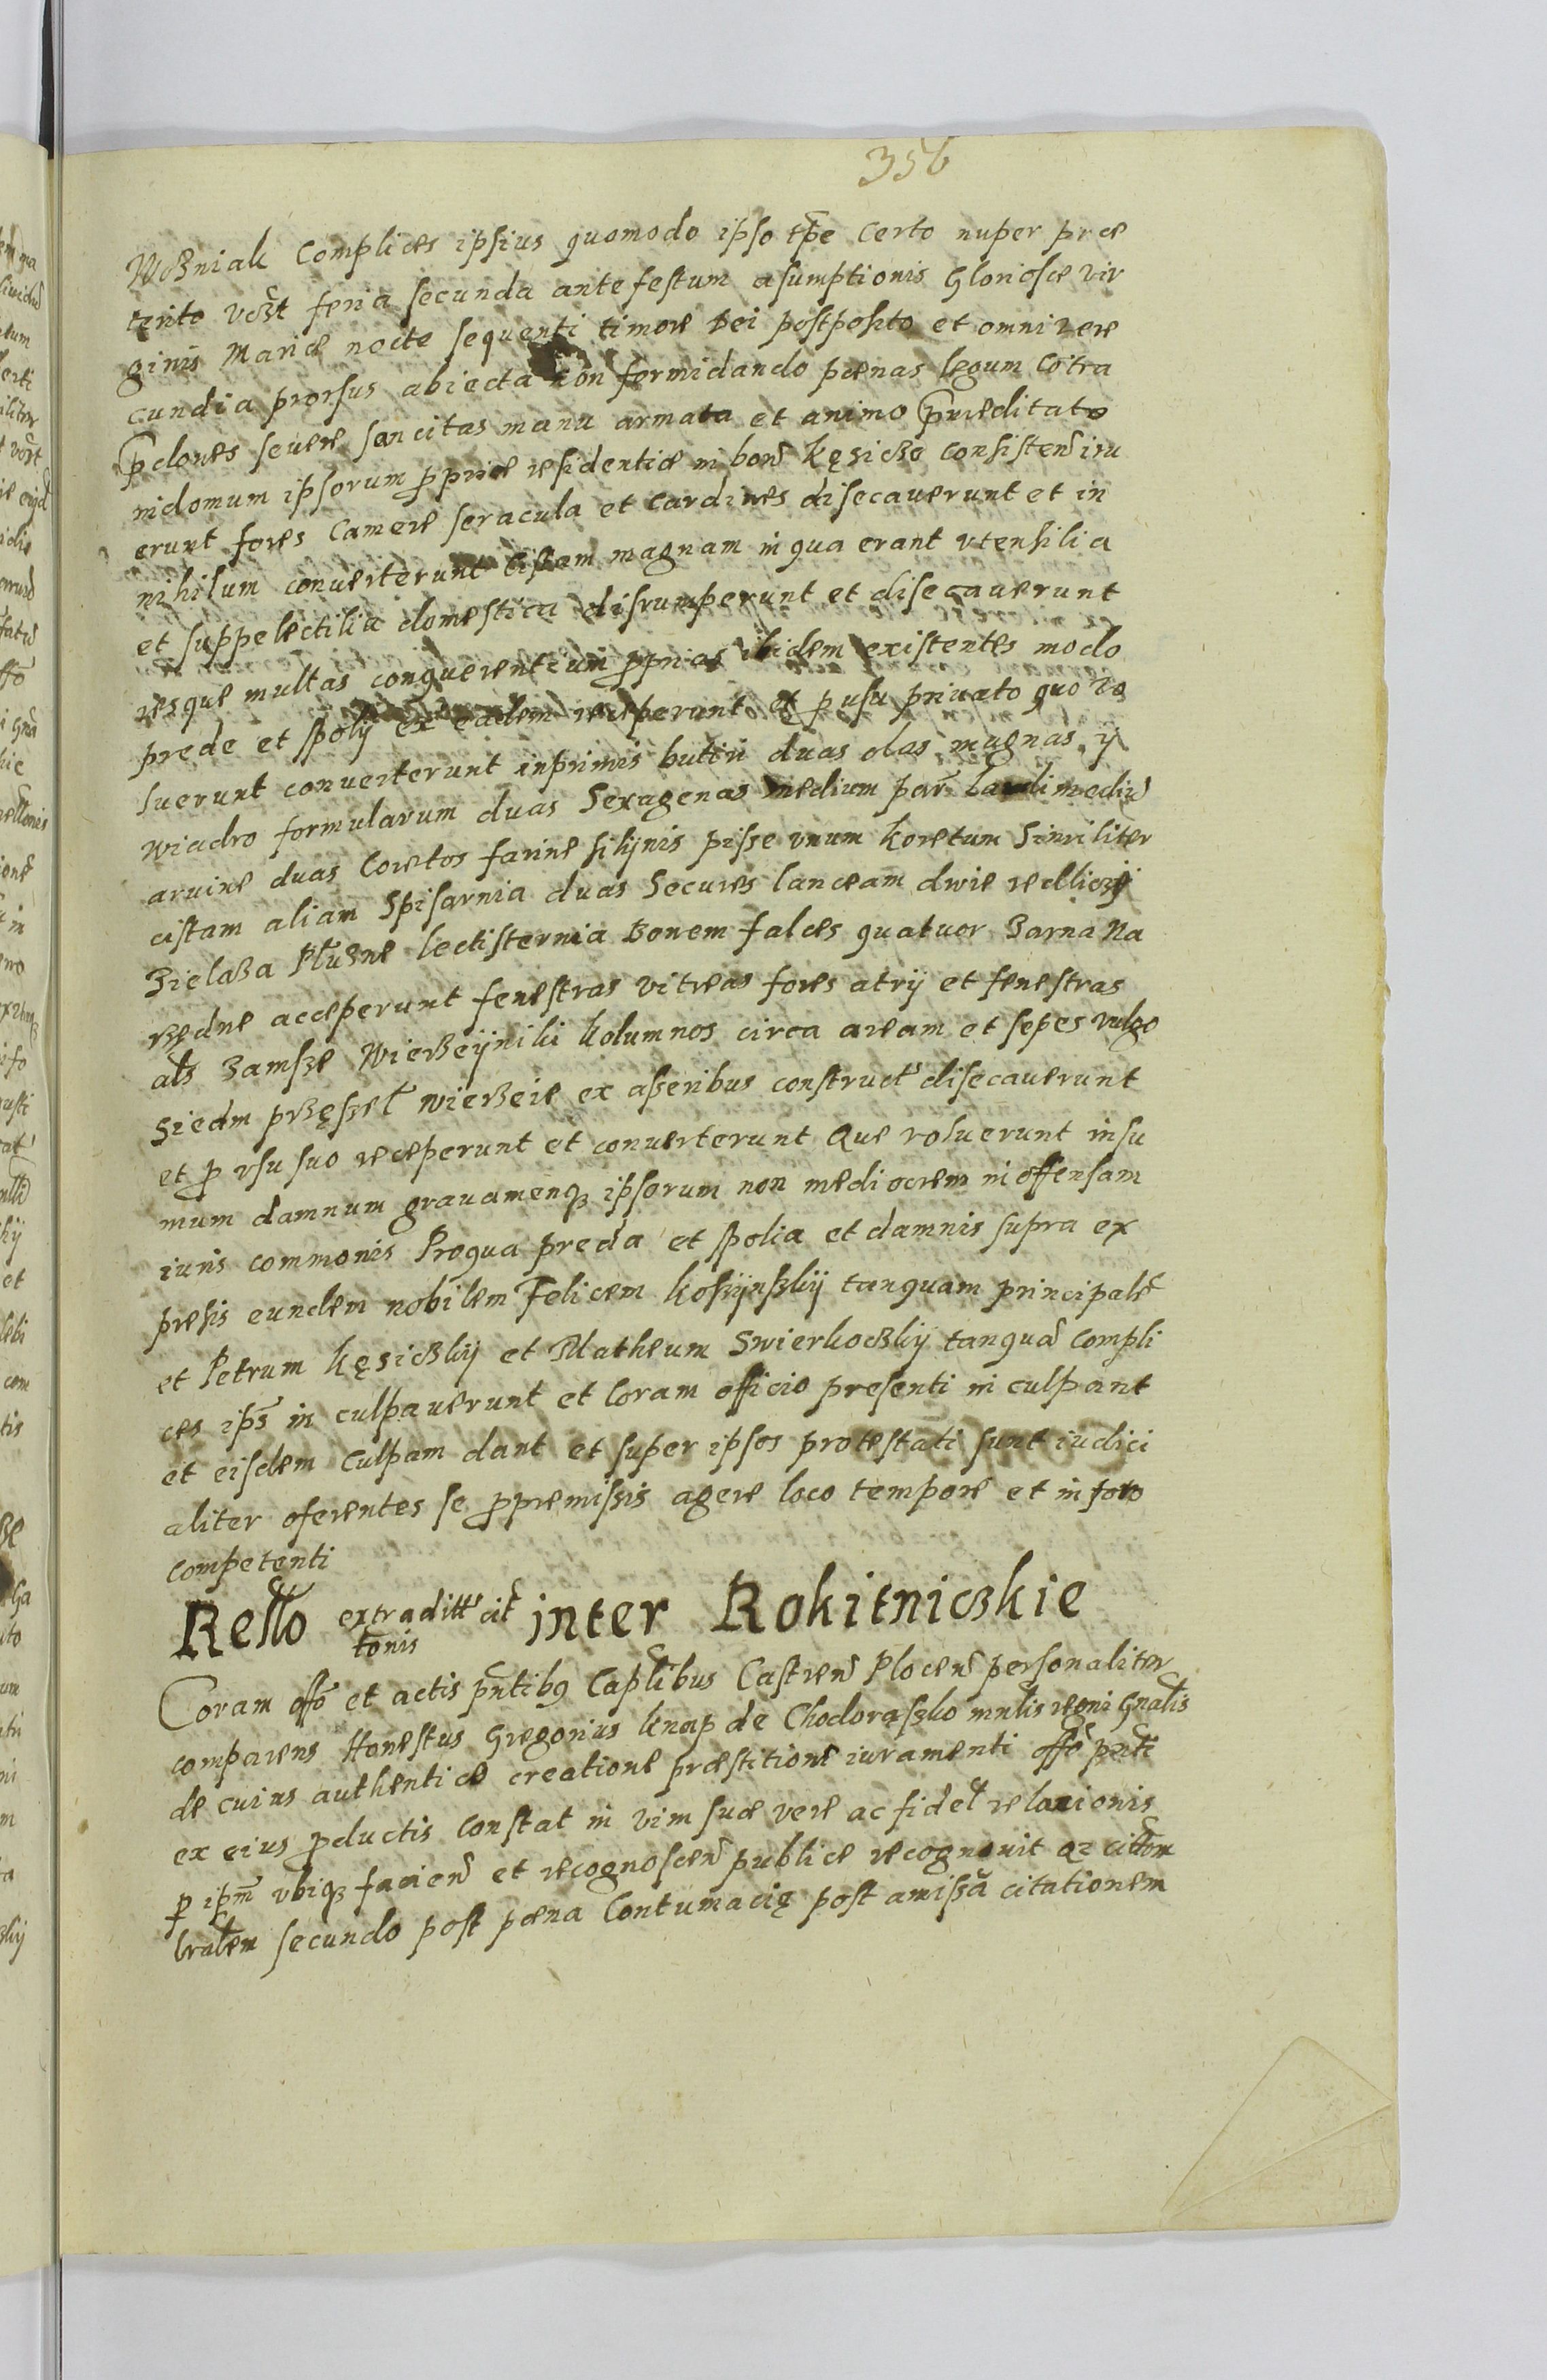 356
Wozniak Complices ipsius quomodo ipso tpe Certo nuper præ
terito vczt feria secunda ante festum asumptionis Gloriosæ vir
ginis Mariæ nocte sequenti timore Dei postposito et omni vere
cundia prorsus abiecta non formidando pœnas legum Cotra
pdones severe sancitas manu armata et animo pmeditato
in domum ipsorum ppriæ residentiæ in bon Kęsicze consisten irru
erunt fores Camere seracula et Cardines disecauerunt et in
nihilum conuerterunt Cistam magnam in qua erant vtensilia
et suppelectilia domestica disrumperunt et disecauerunt
resque multas conquerentium pprias ibidem existentes modo
prede et spolij ex eadem receperunt et p usu priuato quo vo
luerunt conuerterunt inprimis butiri duas olas magnas ij
wiadro formularum duas Sexagenas medium par Lardi mediu
aruine duas Coretos farine silijnis pisse vnum koretum Similiter
cistam aliam Spisarnia duas Secures lanceam dwie redliczij
Zielaza Pluzne lectisternia Bonem falces quatuor Zarna Na
rzędne acceperunt fenestras vitreas fores atrij et fenestras
als Zamsze Wierzeijniki kolumnos circa aream et sepes vulgo
Siedm przęseł wierzeie ex asseribus construct disecauerunt
et p vsu suo receperunt et conuerterunt Que voluerunt in su
mum damnum grauamenq ipsorum non mediocrem in offensam
iuris commonis Proqua preda et spolia et damnis supra ex
presis eundem nobilem Felicem Kosijnskij tanquam principale
et Petrum Kęsiczkij et Matheum Swierkoczkij tanqua compli
ces ips in culpauerunt et Coram officio presenti in culpant
et eisdem Culpam dant et super ipsos protestati sunt iudici
aliter oferentes se ppremissis agere loco tempore et in foro
competenti
Rello extraditt cit inter Rokitniczkie
tonis
Coram offo et actis pntibq Captlibus Castren Plocen personaliter
comparens Honestus Gregorius Knap de Chodorąszko mnrlis regni Gnalis
de cuius authenticæ creatione præstitione iuramenti offo pnti
ex eius pductis Constat in vim suæ vere ac fidel relaxionis
p ipm vbiq facien et recognoscen publice recognouit Qz citom
lralem secundo post pœna Contumacię post amissa citationem